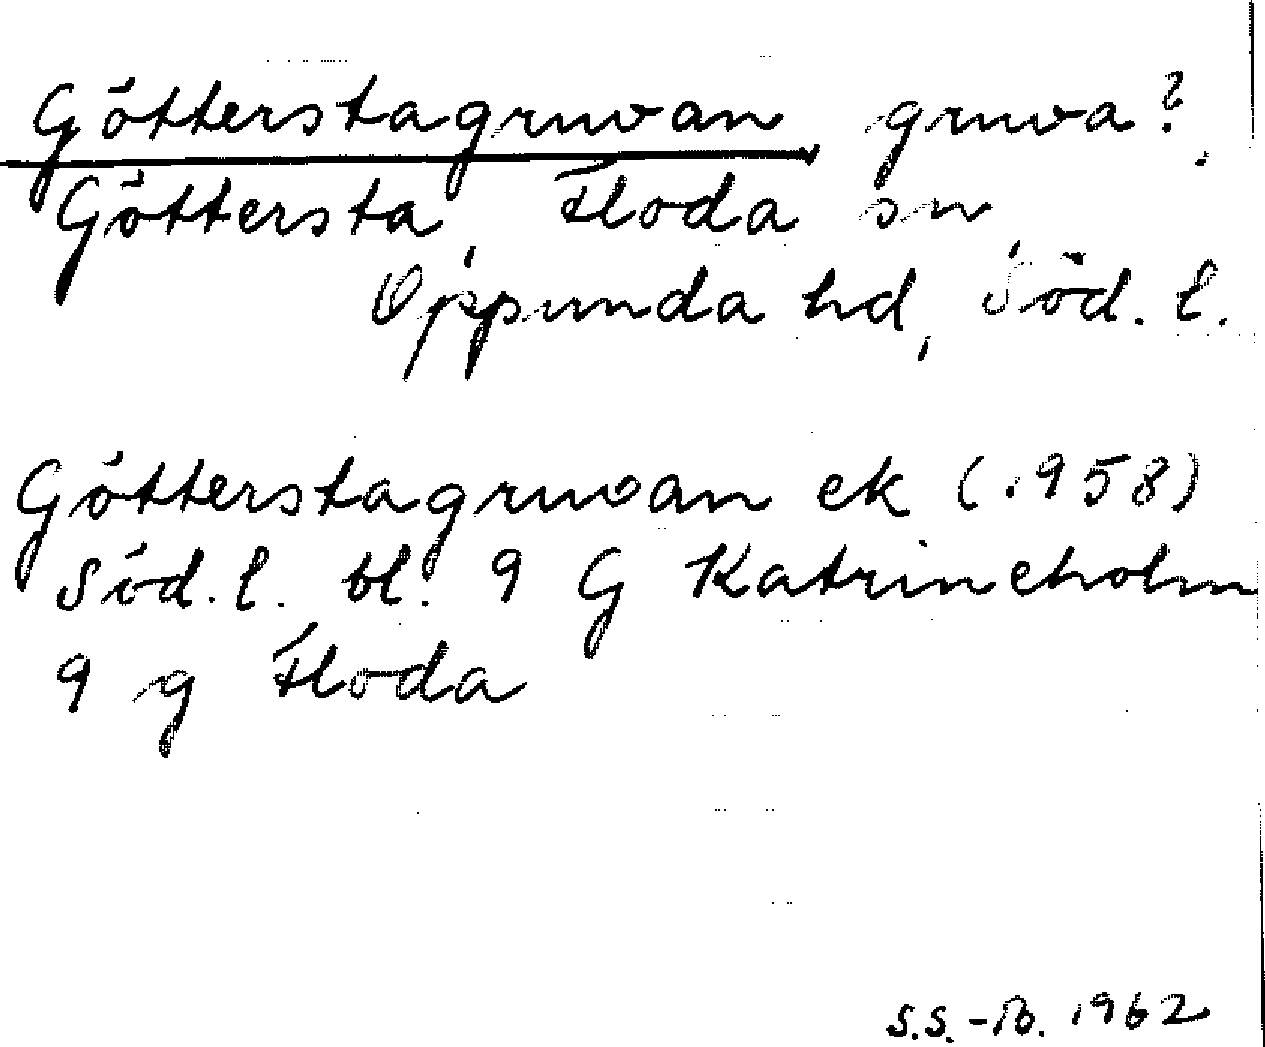 Götterstagruvan gruva?,
Göttersta, Floda sn,
Oppunda hd, Söd. l.
Götterstagruvan ek (1958)
Söd. l. bl. 9 G Katrineholm
9 g Floda
S.S.-B. 1962